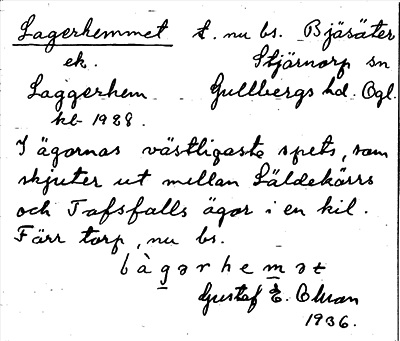 Lagerhemmet t. nu bs. Bjäsäter
ek. Stjärnorp sn
Laggerhem Gullbergs hd. Ögl.
kb 1928.
I ägornas västligaste spets, som
skjuter ut mellan Säldekärrs
och Tafsfalls ägor i en kil.
Färr torp, nu bs.
Gustaf E. Olman
1936.